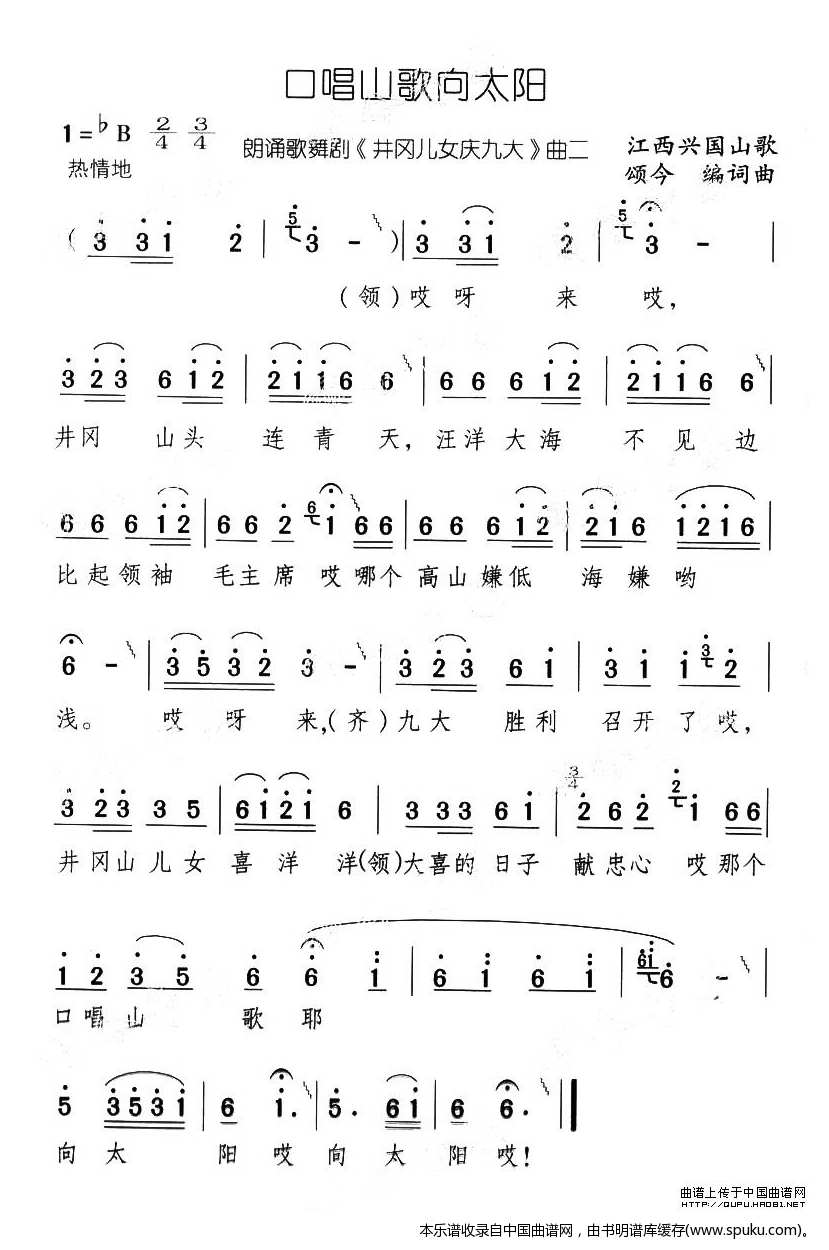 口唱山歌向太阳
1=♭B 2/4 3/4
热情地
朗诵歌舞剧《井冈儿女庆九大》曲二
江西兴国山歌
颂今 编词曲
(3 3 3 1 2 | 5 3 - ) | 3 3 1 2 | 5 3 -
(领)哎呀 来 哎,
3 2 3 6 1 2 | 2 1 1 1 6 6 | 6 6 6 1 2 | 2 1 1 6 6
井冈 山头 连青 天,汪洋大海 不见边
6 6 6 1 2 | 6 6 2 6 1 6 6 | 6 6 6 1 2 | 2 1 6 1 2 1 6
比起领袖 毛主席哎哪个高山嫌低 海嫌哟
6 - | 3 5 3 2 3 - | 3 2 3 6 1 | 3 1 3 2
浅。 哎呀 来,(齐)九大 胜利 召开了哎,
3 2 3 3 5 | 6 1 2 1 6 | 3 3 3 6 1 | 3/4 2 6 2 2 1 6 6
井冈山儿女喜洋 洋(领)大喜的日子 献忠心 哎那个
1 2 3 5 6 6 | 1 6 | 6 1 | 6 1 6 -
口唱山 歌耶
5 3 5 3 1 | 6 1. | 5. 6 1 | 6 6.
向太 阳哎向太 阳哎!
曲谱上传于中国曲谱网
HTTP://QUPU.HAO81.NET
本乐谱收录自中国曲谱网，由书明谱库缓存(www.spuku.com)。